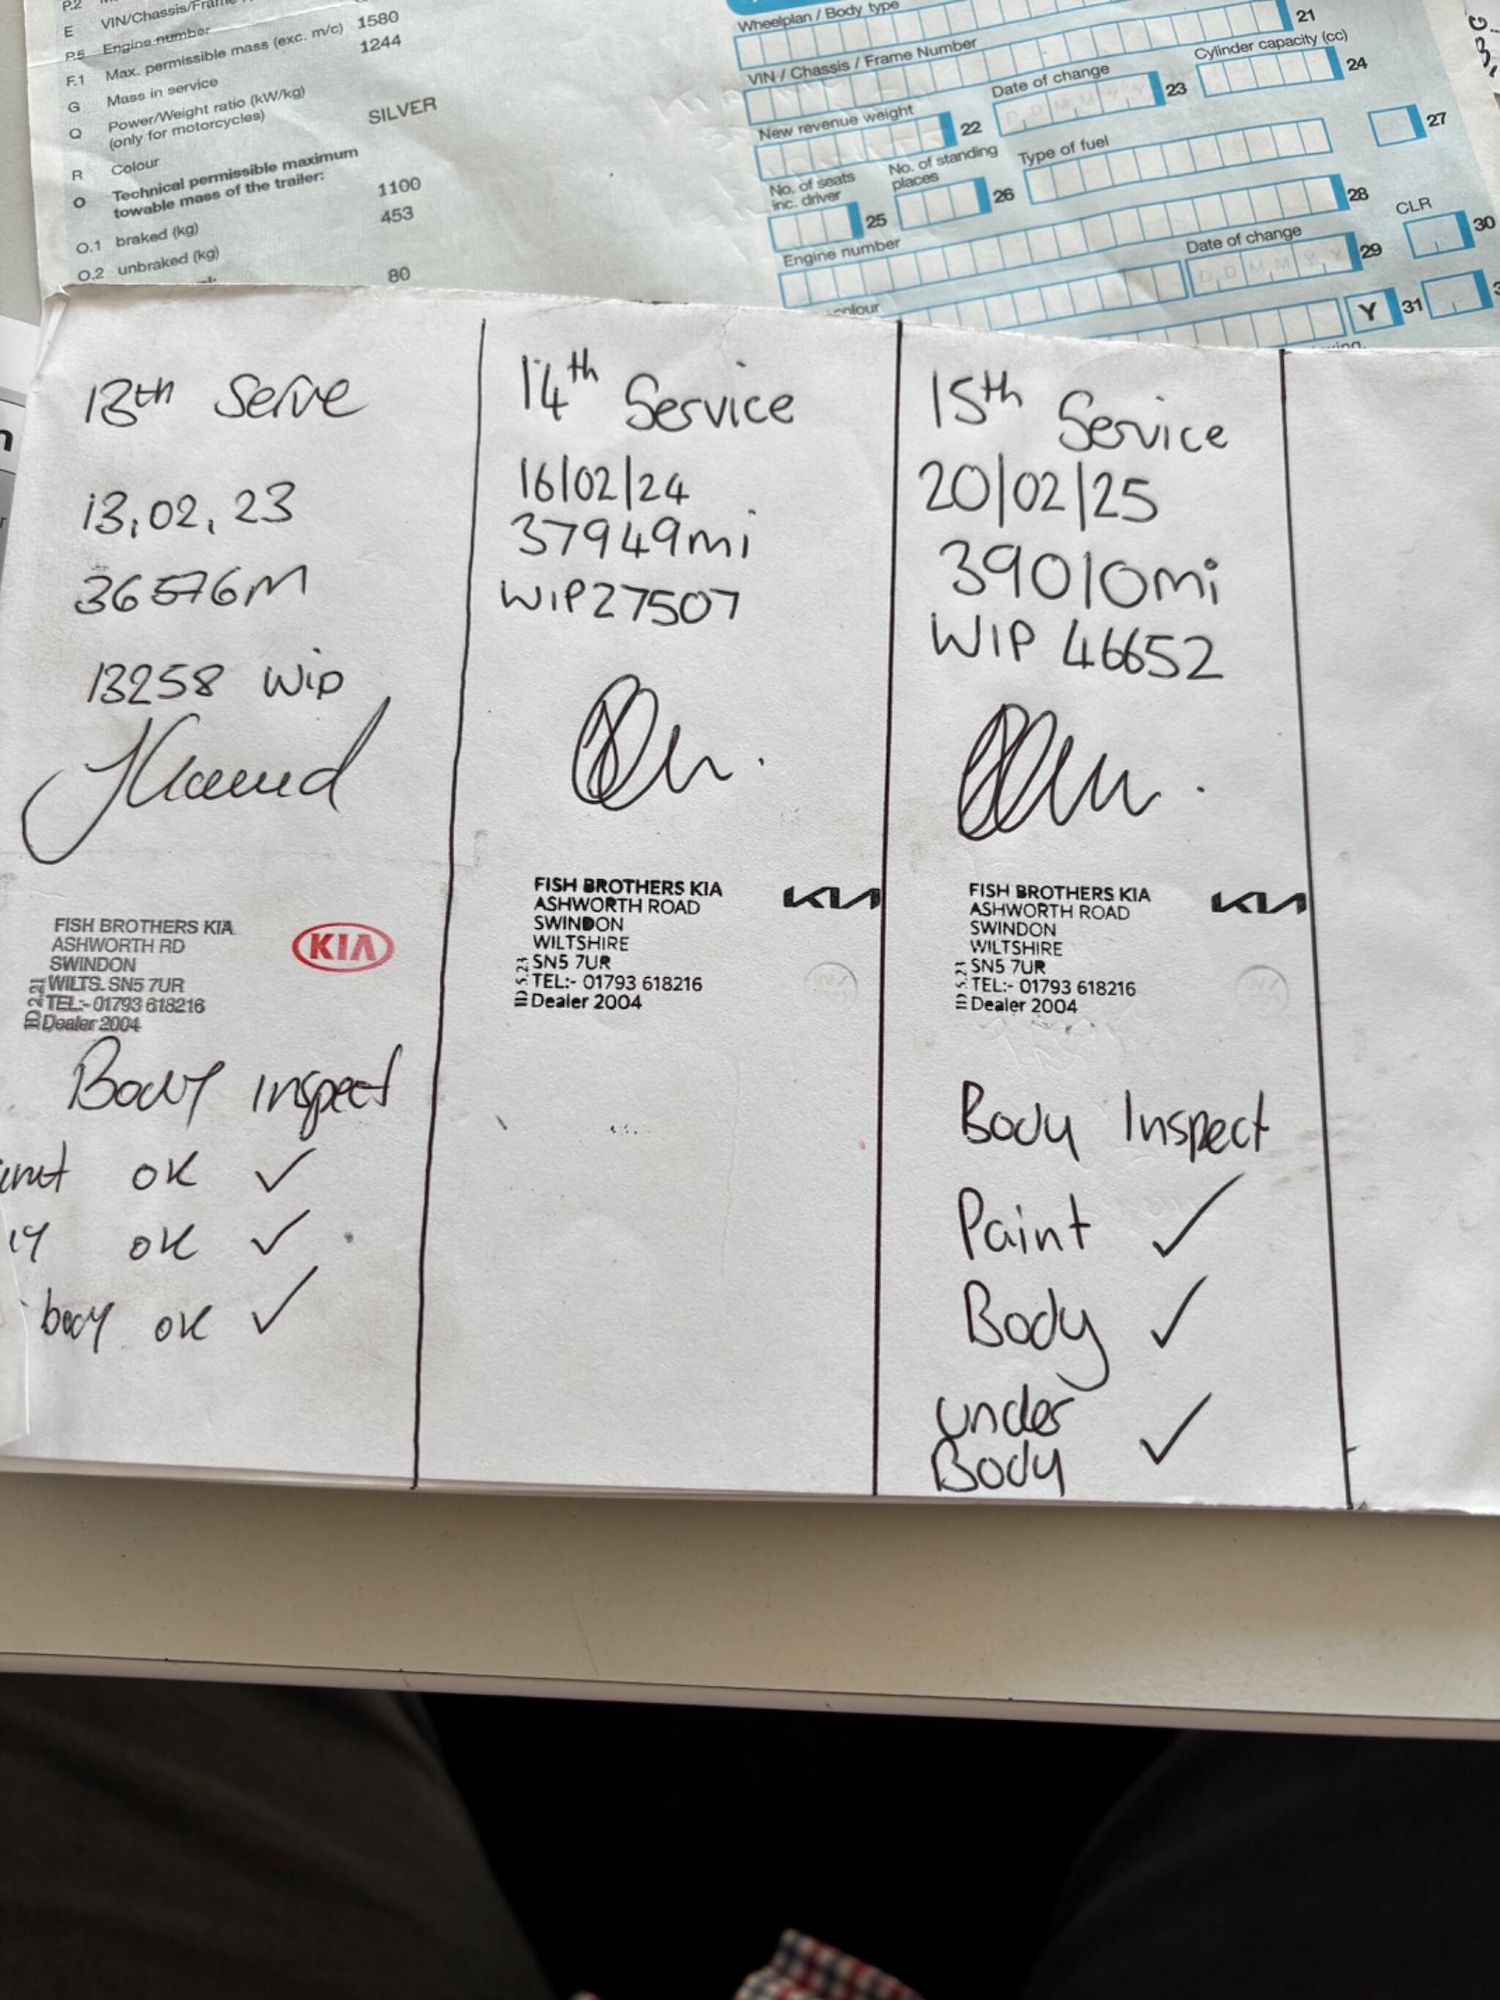 P.2
E VIN/Chassis/Frame
P.5 Engine number
F.1 Max. permissible mass (exc. m/c) 1580
G Mass in service 1244
Q Power/Weight ratio (kW/kg)
(only for motorcycles)
R Colour SILVER
O Technical permissible maximum
towable mass of the trailer:
O.1 braked (kg) 1100
O.2 unbraked (kg) 453
80
Wheelplan / Body type
21
VIN / Chassis / Frame Number
Cylinder capacity (cc)
24
Date of change
23
D D M M Y Y
New revenue weight
22
27
No. of seats
inc. driver
25
No. of standing
places
26
Type of fuel
28
Engine number
Date of change
D D M M Y Y
29
CLR
30
colour
Y 31
13th Serve
13,02,23
36576M
13258 Wip
FISH BROTHERS KIA
ASHWORTH RD
SWINDON
WILTS. SN5 7UR
TEL:- 01793 618216
Dealer 2004
ID 2.21
KIA
Body Inspect
OK ✓
OK ✓
body OK ✓
14th Service
16/02/24
37949mi
WIP27507
FISH BROTHERS KIA
ASHWORTH ROAD
SWINDON
WILTSHIRE
SN5 7UR
TEL:- 01793 618216
Dealer 2004
ID 5.23
KIA
15th Service
20/02/25
39010mi
WIP 46652
FISH BROTHERS KIA
ASHWORTH ROAD
SWINDON
WILTSHIRE
SN5 7UR
TEL:- 01793 618216
Dealer 2004
KIA
Body Inspect
Paint ✓
Body ✓
under ✓
Body